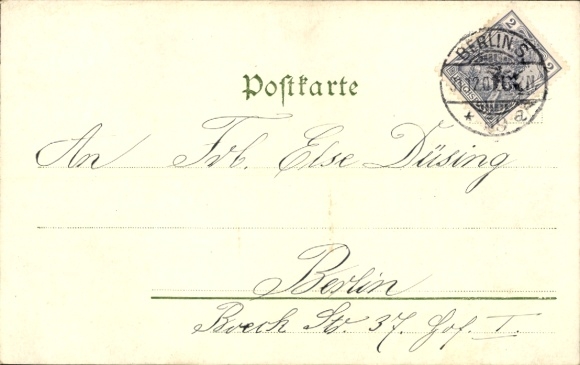 2
2
BERLIN.S.
Postkarte
An Frl. Else Düsing
Berlin
Boeckh Str. 37. Hof I.